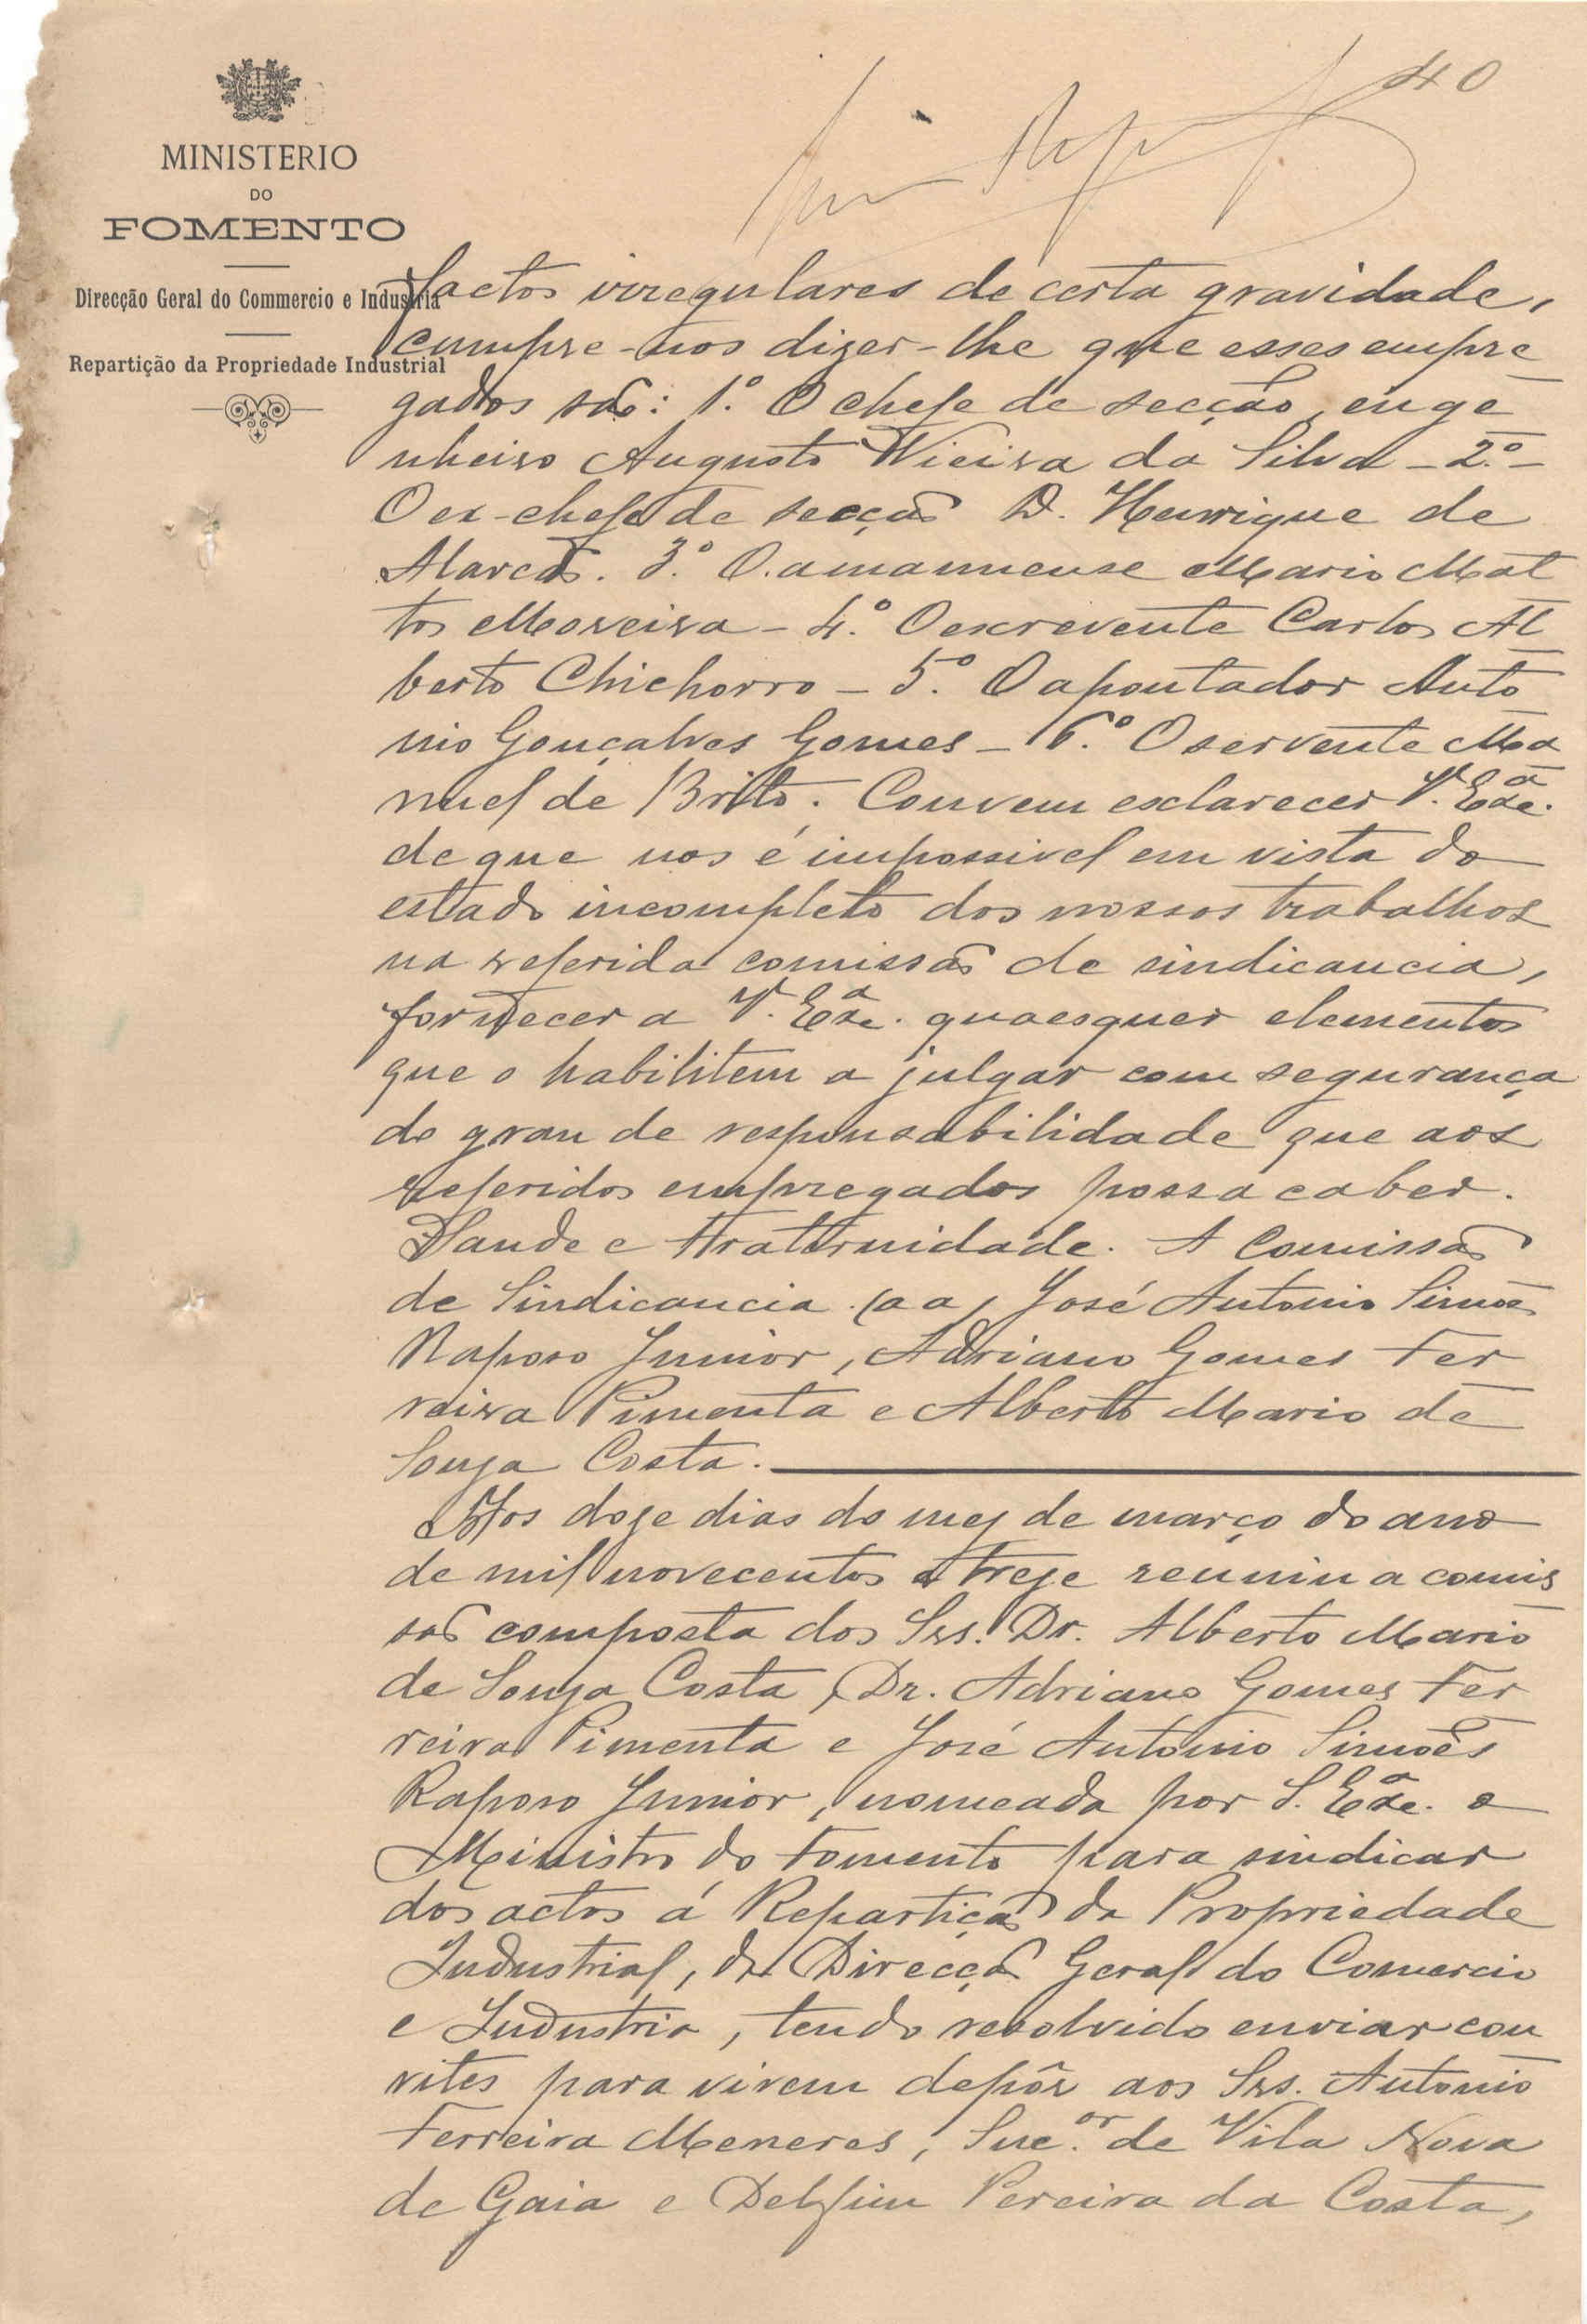 40
MINISTERIO
DO
FOMENTO
Direcção Geral do Commercio e Industria
Repartição da Propriedade Industrial
factos irregulares de certa gravidade,
cumpre-nos dizer-lhe que esses empre
gados são: 1.º O chefe de secção, enge
nheiro Augusto Vieira da Silva - 2.º -
O ex-chefe de secção D. Henrique de
Alarcão. 3.º O amanuense Mario Mat
tos Moreira - 4.º O escrevente Carlos Al
berto Chichorro - 5.º O apontador Anto
nio Gonçalves Gomes - 6.º O servente Ma
nuel de Brito. Convem esclarecer V. Exª.
de que nos é impossivel em vista do
estado incompleto dos nossos trabalhos
na referida comissão de sindicancia,
fornecer a V. Exª. quaesquer elementos
que o habilitem a julgar com segurança
do grau de responsabilidade que aos
referidos empregados possa caber.
Saude e Fraternidade. A Comissão
de Sindicancia. (aa) José Antonio Simões
Raposo Junior, Adriano Gomes Fer
reira Pimenta e Alberto Mario de
Souza Costa.
Aos doze dias do mez de março do ano
de mil novecentos e treze reuniu a comis
são composta dos Srs. Dr. Alberto Mario
de Souza Costa, Dr. Adriano Gomes Fer
reira Pimenta e José Antonio Simões
Raposo Junior, nomeada por S. Exª. o
Ministro do Fomento para sindicar
dos actos á Repartição da Propriedade
Industrial, da Direcção Geral do Comercio
e Industria, tendo resolvido enviar con
vites para virem depôr aos Srs. Antonio
Ferreira Meneres, Suc.or de Vila Nova
de Gaia e Delfim Pereira da Costa,